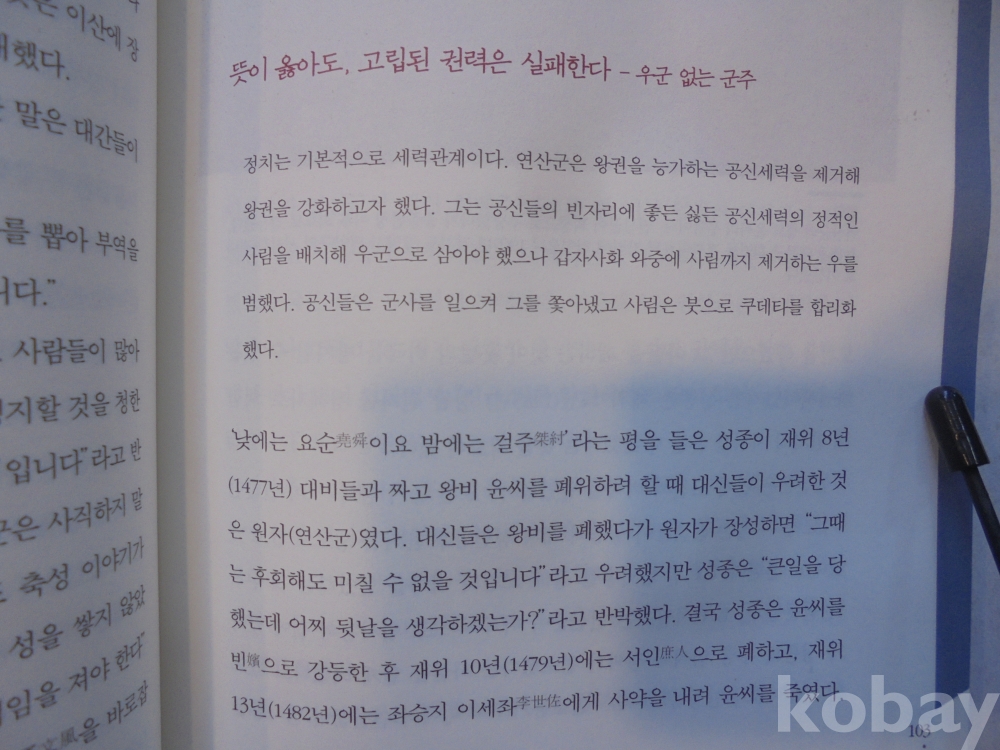 이산에 장
했다.
말은 대간들이
를 뽑아 부역을
니다."
사람들이 많아
지할 것을 청한
입니다"라고 반
은 사직하지 말
축성 이야기가
성을 쌓지 않았
임을 져야 한다"
을 바로잡
뜻이 옳아도, 고립된 권력은 실패한다 – 우군 없는 군주
정치는 기본적으로 세력관계이다. 연산군은 왕권을 능가하는 공신세력을 제거해
왕권을 강화하고자 했다. 그는 공신들의 빈자리에 좋든 싫든 공신세력의 정적인
사림을 배치해 우군으로 삼아야 했으나 갑자사화 와중에 사림까지 제거하는 우를
범했다. 공신들은 군사를 일으켜 그를 쫓아냈고 사림은 붓으로 쿠데타를 합리화
했다.
'낮에는 요순堯舜이요 밤에는 걸주桀紂'라는 평을 들은 성종이 재위 8년
(1477년) 대비들과 짜고 왕비 윤씨를 폐위하려 할 때 대신들이 우려한 것
은 원자(연산군)였다. 대신들은 왕비를 폐했다가 원자가 장성하면 "그때
는 후회해도 미칠 수 없을 것입니다"라고 우려했지만 성종은 "큰일을 당
했는데 어찌 뒷날을 생각하겠는가?"라고 반박했다. 결국 성종은 윤씨를
빈嬪으로 강등한 후 재위 10년(1479년)에는 서인庶人으로 폐하고, 재위
13년(1482년)에는 좌승지 이세좌李世佐에게 사약을 내려 윤씨를 죽였다.
103
kobay